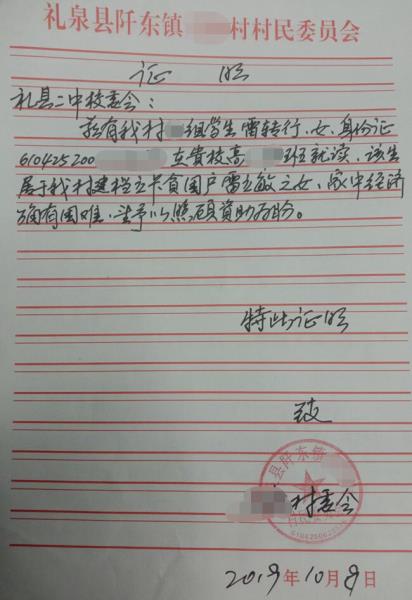 礼泉县阡东镇 村村民委员会
证 明
礼县二中校委会：
兹有我村 组学生雷转行、女、身份证
610425200 在贵校高 班就读、该生
属于我村建档立卡贫困户雷立敏之女、家中经济
确有困难、望予以照顾资助为盼。
特此证明
致
县阡东镇
村委会
2019年10月9日